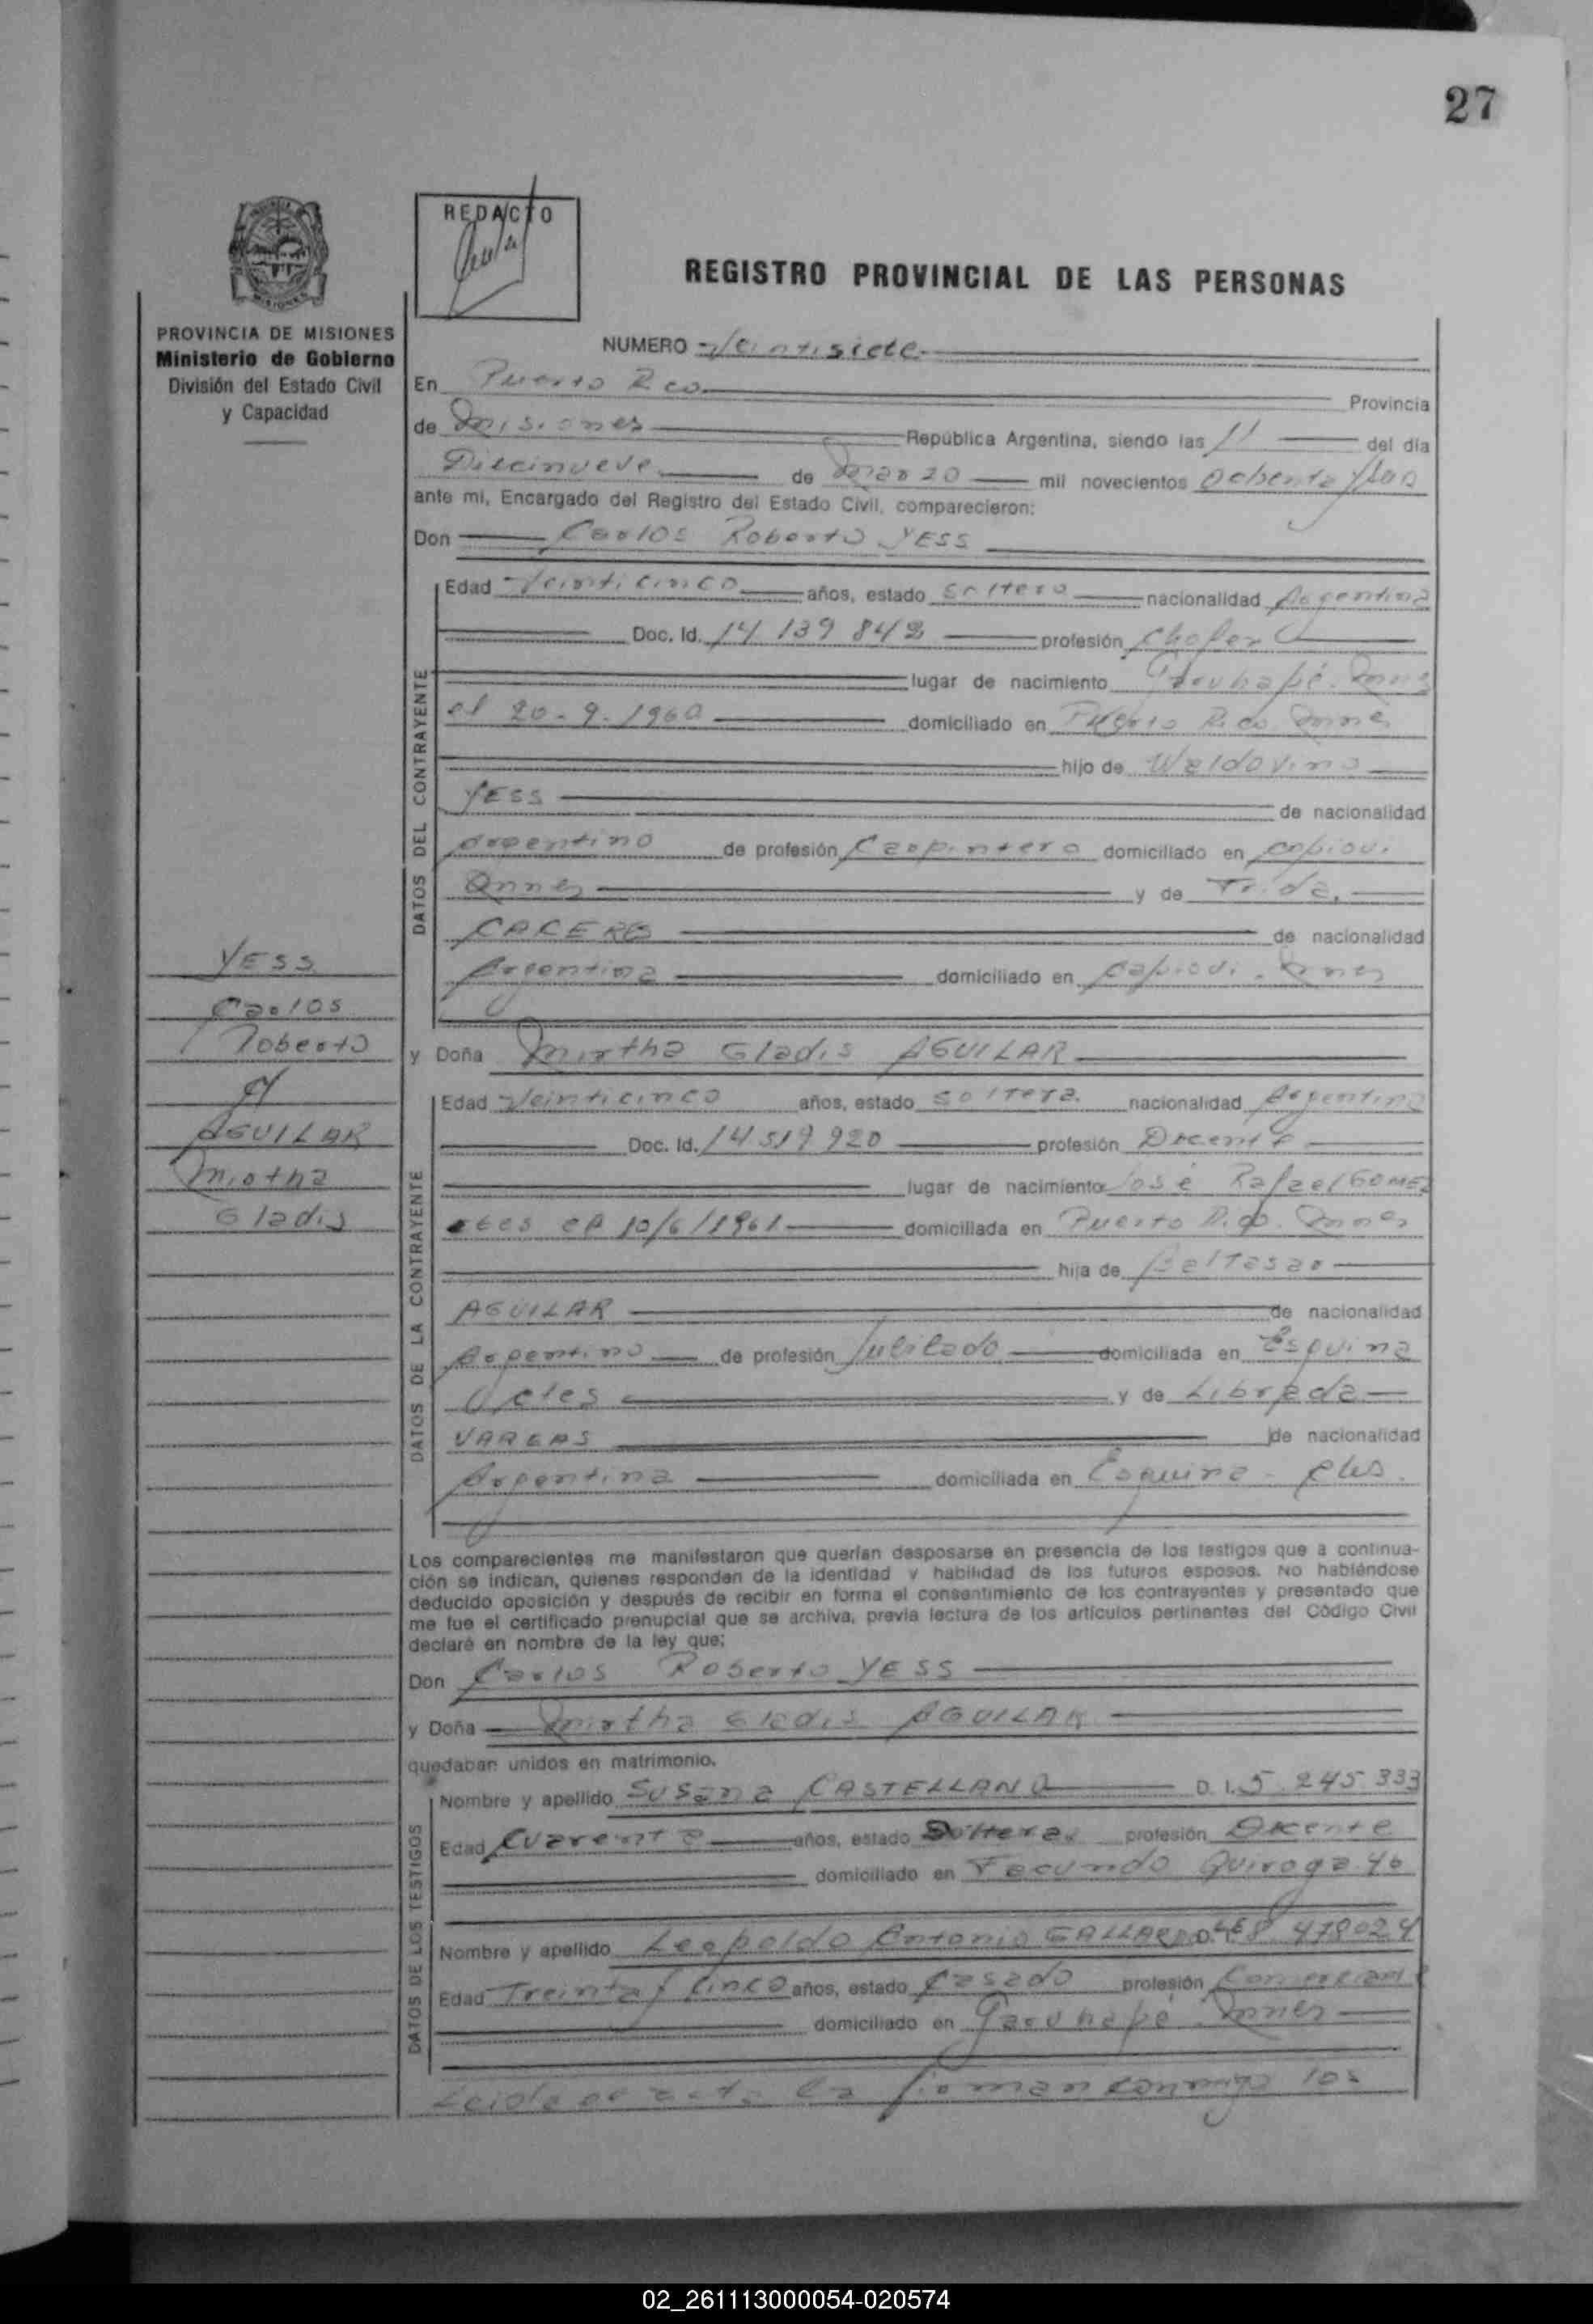 27
REDACTO
REGISTRO PROVINCIAL DE LAS PERSONAS
PROVINCIA DE MISIONES
Ministerio de Gobierno
División del Estado Civil
y Capacidad
NUMERO Veintisiete
En Puerto Rico Provincia
de Misiones República Argentina, siendo las 11 del día
Diecinueve de Marzo mil novecientos Ochenta y
ante mi, Encargado del Registro del Estado Civil, comparecieron:
Don Carlos Roberto YESS
Edad Veinticinco años, estado Soltero nacionalidad Argentina
Doc. Id. 14 139 842 profesión Chofer
lugar de nacimiento Garuhapé. Mnes
el 20-9-1960 domiciliado en Puerto Rico Mnes
hijo de Waldovino
YESS de nacionalidad
Argentino de profesión Carpintero domiciliado en Capiovi
Mnes y de
CACERES de nacionalidad
Argentina domiciliado en Capiovi. Mnes
DATOS DEL CONTRAYENTE
YESS
Carlos
Roberto
y
AGUILAR
Mirtha
Gladis
y Doña Mirtha Gladis AGUILAR
Edad Veinticinco años, estado soltera nacionalidad Argentina
Doc. Id. 14 519 920 profesión Docente
lugar de nacimiento José Rafael GOMEZ
el 10/6/1961 domiciliada en Puerto Rico. Mnes
hija de Baltasar
AGUILAR de nacionalidad
Argentino de profesión Jubilado domiciliada en Esquina
Ctes y de Librada
VARGAS de nacionalidad
Argentina domiciliada en Esquina - Ctes.
DATOS DE LA CONTRAYENTE
Los comparecientes me manifestaron que querían desposarse en presencia de los testigos que a continua-
ción se indican, quienes responden de la identidad y habilidad de los futuros esposos. No habiéndose
deducido oposición y después de recibir en forma el consentimiento de los contrayentes y presentado que
me fue el certificado prenupcial que se archiva, previa lectura de los artículos pertinentes del Código Civil
declaré en nombre de la ley que:
Don Carlos Roberto YESS
y Doña Mirtha Gladis AGUILAR
quedaban unidos en matrimonio.
Nombre y apellido Susana CASTELLANO D. I. 5.245.333
Edad Cuarenta años, estado Soltera profesión Docente
domiciliado en Facundo Quiroga 46
Nombre y apellido Leopoldo Antonio GALLARDO 8.478024
Edad Treinta y Cinco años, estado Casado profesión Comerciant
domiciliado en Garuhapé Mnes
DATOS DE LOS TESTIGOS
Leida el acta la firman conmigo los
02_261113000054-020574